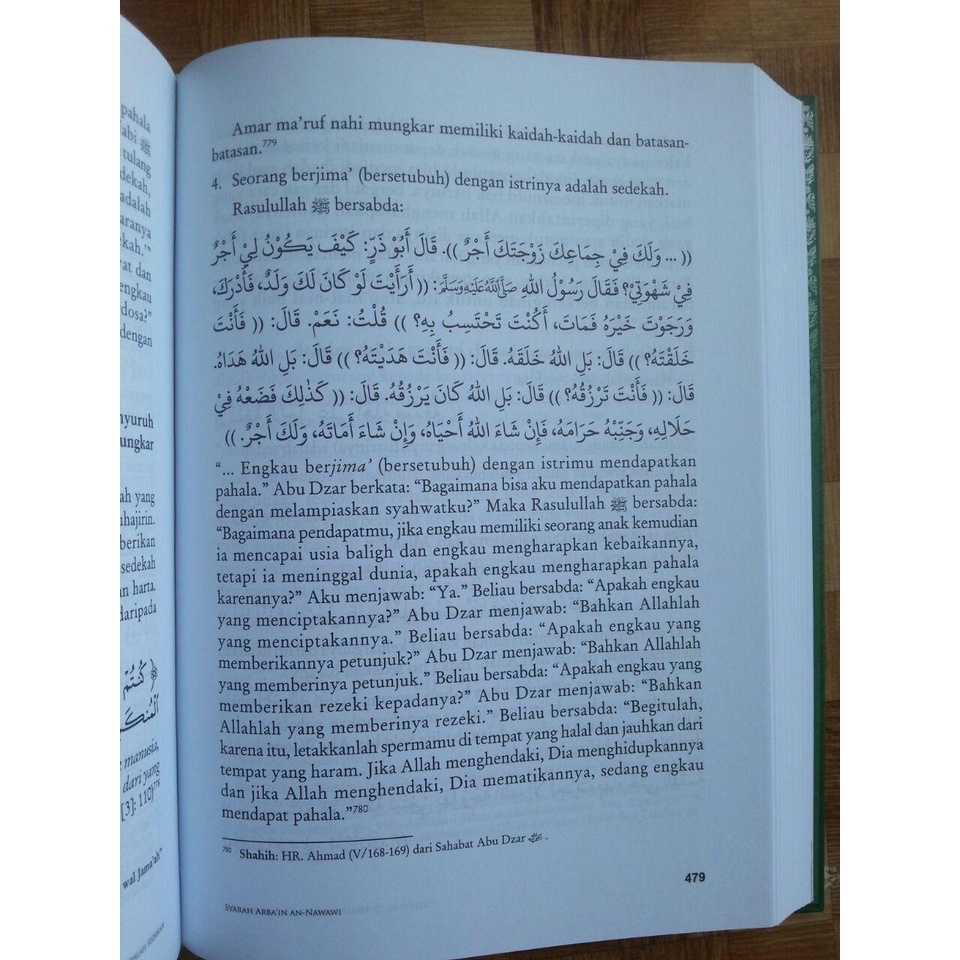 pahala
abi ﷺ
tulang
dekah,
adalah
aranya
ekah.'"
yat dan
engkau
dosa?"
dengan
nyuruh
ungkar
ah yang
uhajirin.
berikan
sedekah
an harta.
daripada
﴿ كُنتُمْ
الْمُنكَ
manusia,
dari yang
[3]: 110)⁷⁷⁸
wal Jama'ah"
Amar ma'ruf nahi mungkar memiliki kaidah-kaidah dan batasan-
batasan.⁷⁷⁹
4. Seorang berjima' (bersetubuh) dengan istrinya adalah sedekah.
Rasulullah ﷺ bersabda:
(( ... وَلَكَ فِيْ جِمَاعِكَ زَوْجَتَكَ أَجْرٌ )). قَالَ أَبُوْ ذَرٍّ: كَيْفَ يَكُوْنُ لِيْ أَجْرٌ
فِيْ شَهْوَتِيْ؟ فَقَالَ رَسُوْلُ اللهِ صَلَّى اللهُ عَلَيْهِ وَسَلَّمَ: (( أَرَأَيْتَ لَوْ كَانَ لَكَ وَلَدٌ، فَأَدْرَكَ،
وَرَجَوْتَ خَيْرَهُ فَمَاتَ، أَكُنْتَ تَحْتَسِبُ بِهِ؟ )) قُلْتُ: نَعَمْ. قَالَ: (( فَأَنْتَ
خَلَقْتَهُ؟ )) قَالَ: بَلِ اللهُ خَلَقَهُ. قَالَ: (( فَأَنْتَ هَدَيْتَهُ؟ )) قَالَ: بَلِ اللهُ هَدَاهُ.
قَالَ: (( فَأَنْتَ تَرْزُقُهُ؟ )) قَالَ: بَلِ اللهُ كَانَ يَرْزُقُهُ. قَالَ: (( كَذٰلِكَ فَضَعْهُ فِيْ
حَلَالِهِ، وَجَنِّبْهُ حَرَامَهُ، فَإِنْ شَاءَ اللهُ أَحْيَاهُ، وَإِنْ شَاءَ أَمَاتَهُ، وَلَكَ أَجْرٌ. ))
"... Engkau berjima' (bersetubuh) dengan istrimu mendapatkan
pahala." Abu Dzar berkata: "Bagaimana bisa aku mendapatkan pahala
dengan melampiaskan syahwatku?" Maka Rasulullah ﷺ bersabda:
"Bagaimana pendapatmu, jika engkau memiliki seorang anak kemudian
ia mencapai usia baligh dan engkau mengharapkan kebaikannya,
tetapi ia meninggal dunia, apakah engkau mengharapkan pahala
karenanya?" Aku menjawab: "Ya." Beliau bersabda: "Apakah engkau
yang menciptakannya?" Abu Dzar menjawab: "Bahkan Allahlah
yang menciptakannya." Beliau bersabda: "Apakah engkau yang
memberikannya petunjuk?" Abu Dzar menjawab: "Bahkan Allahlah
yang memberinya petunjuk." Beliau bersabda: "Apakah engkau yang
memberikan rezeki kepadanya?" Abu Dzar menjawab: "Bahkan
Allahlah yang memberinya rezeki." Beliau bersabda: "Begitulah,
karena itu, letakkanlah spermamu di tempat yang halal dan jauhkan dari
tempat yang haram. Jika Allah menghendaki, Dia menghidupkannya
dan jika Allah menghendaki, Dia mematikannya, sedang engkau
mendapat pahala."⁷⁸⁰
⁷⁸⁰ Shahih: HR. Ahmad (V/168-169) dari Sahabat Abu Dzar .
479
Syarah Arba'in an-Nawawi